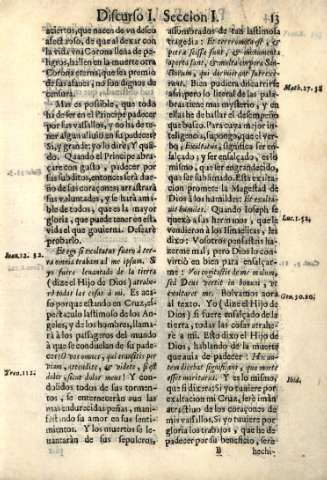 Discurso I. Seccion I. 13
aciertos, que nacen de vn deseo
afectuoso, de que al dexar con
la vida vna Corona llena de peligros,
hallen en la muerte otra
Corona eterna, que sea premio
de sus afanes, no son dignos de
censura.
Mas es possible, que toda
ha de ser en el Principe padecer
por sus vassallos, y no ha de tener
algun alivio en su padecer?
Si, y grande: yo lo diré, Y quãdo.
Quando el Principe abraçare
con gusto, padecer por
sus subditos, entonces será dueño
de sus coraçones, arrastrará
sus voluntades, y se hará amable
de todos, que es la mayor
gloria, que puede tener en esta
vida el que govierna. Desearé
probarlo.
Ioan. 12. 32.
Et ego si exaltatus fuero à terra
omnia traham ad me ipsum. Si
yo fuere levantado de la tierra
(dize el Hijo de Dios) atraheré
todas las cosas à mi. Es acaso
porque estando en Cruz, espectaculo
lastimoso de los Angeles,
y de los hombres, llamará
à los passageros del mundo
à que se conduelan de su padecer:
O vos omnes, qui transitis per
viam, attendite, & videte, si est
dolor, sicut dolor meus? Y condolidos
todos de sus tormentos,
se enterneceràn aun las
mas endurecidas peñas, manifestando
su amor en sus sentimientos.
Y los muertos se levantarán
de sus sepulcros,
Tren. 1. 12.
assombrados de tan lastimosa
tragedia: Et terra mota est, &
petra scissa sunt, & monumenta
aperta sunt, & multa corpora Sanctorum,
qui dormierant surrexerunt.
Bien pudiera discurrirse
assi; pero lo literal de las palabras
tiene mas mysterio, y en
ellas he de hallar el desempeño
Math. 27. 58
que busco. Para cuya mejor inteligencia,
supongo, que el verbo,
Exaltatus, significa ser ensalçado;
y ser ensalçado, es lo
mismo, que ser engrandecido,
que ser sublimado. Esta exaltacion
promete la Magestad de
Dios à los humildes: Et exaltavit
humiles. Quando Ioseph se
quexó à sus hermanos, que le
vendieron à los Ismaelitas, les
dixo: Vosotros pensasteis hazerme
mal; pero Dios lo convirtió
en bien para ensalçarme:
Vos cogitastis de me malum,
sed Deus vertit in bonum, ut
exaltaret me. Bolvamos aora
al texto. Yo (dize el Hijo de
Dios) si fuere ensalçado de la
tierra, todas las cosas atraheré
à mi. Esto dixo el Hijo de
Dios, hablando de la muerte
que avia de padecer: Hoc autem
dicebat significans, qua morte
esset moriturus. Y es lo mismo,
que si dixera: Si yo tuviere por
exaltacion mi Cruz, será imán
atractivo de los coraçones de
mis vassallos. Si yo tuviere por
gloria los trabajos, que he de
padecer por su beneficio, serà
Luc. 1. 52.
Gen. 50. 20.
Ibid.
B hechi-